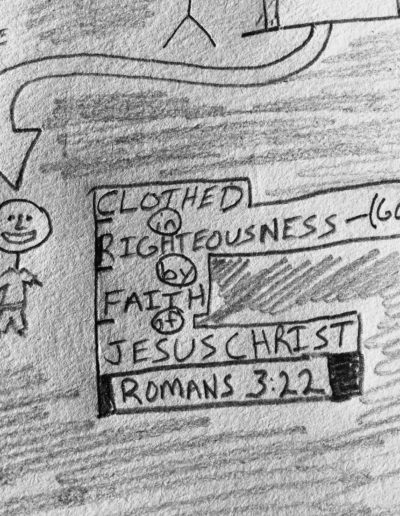 CLOTHED
in
RIGHTEOUSNESS-(GO
by
FAITH
of
JESUS CHRIST
ROMANS 3:22